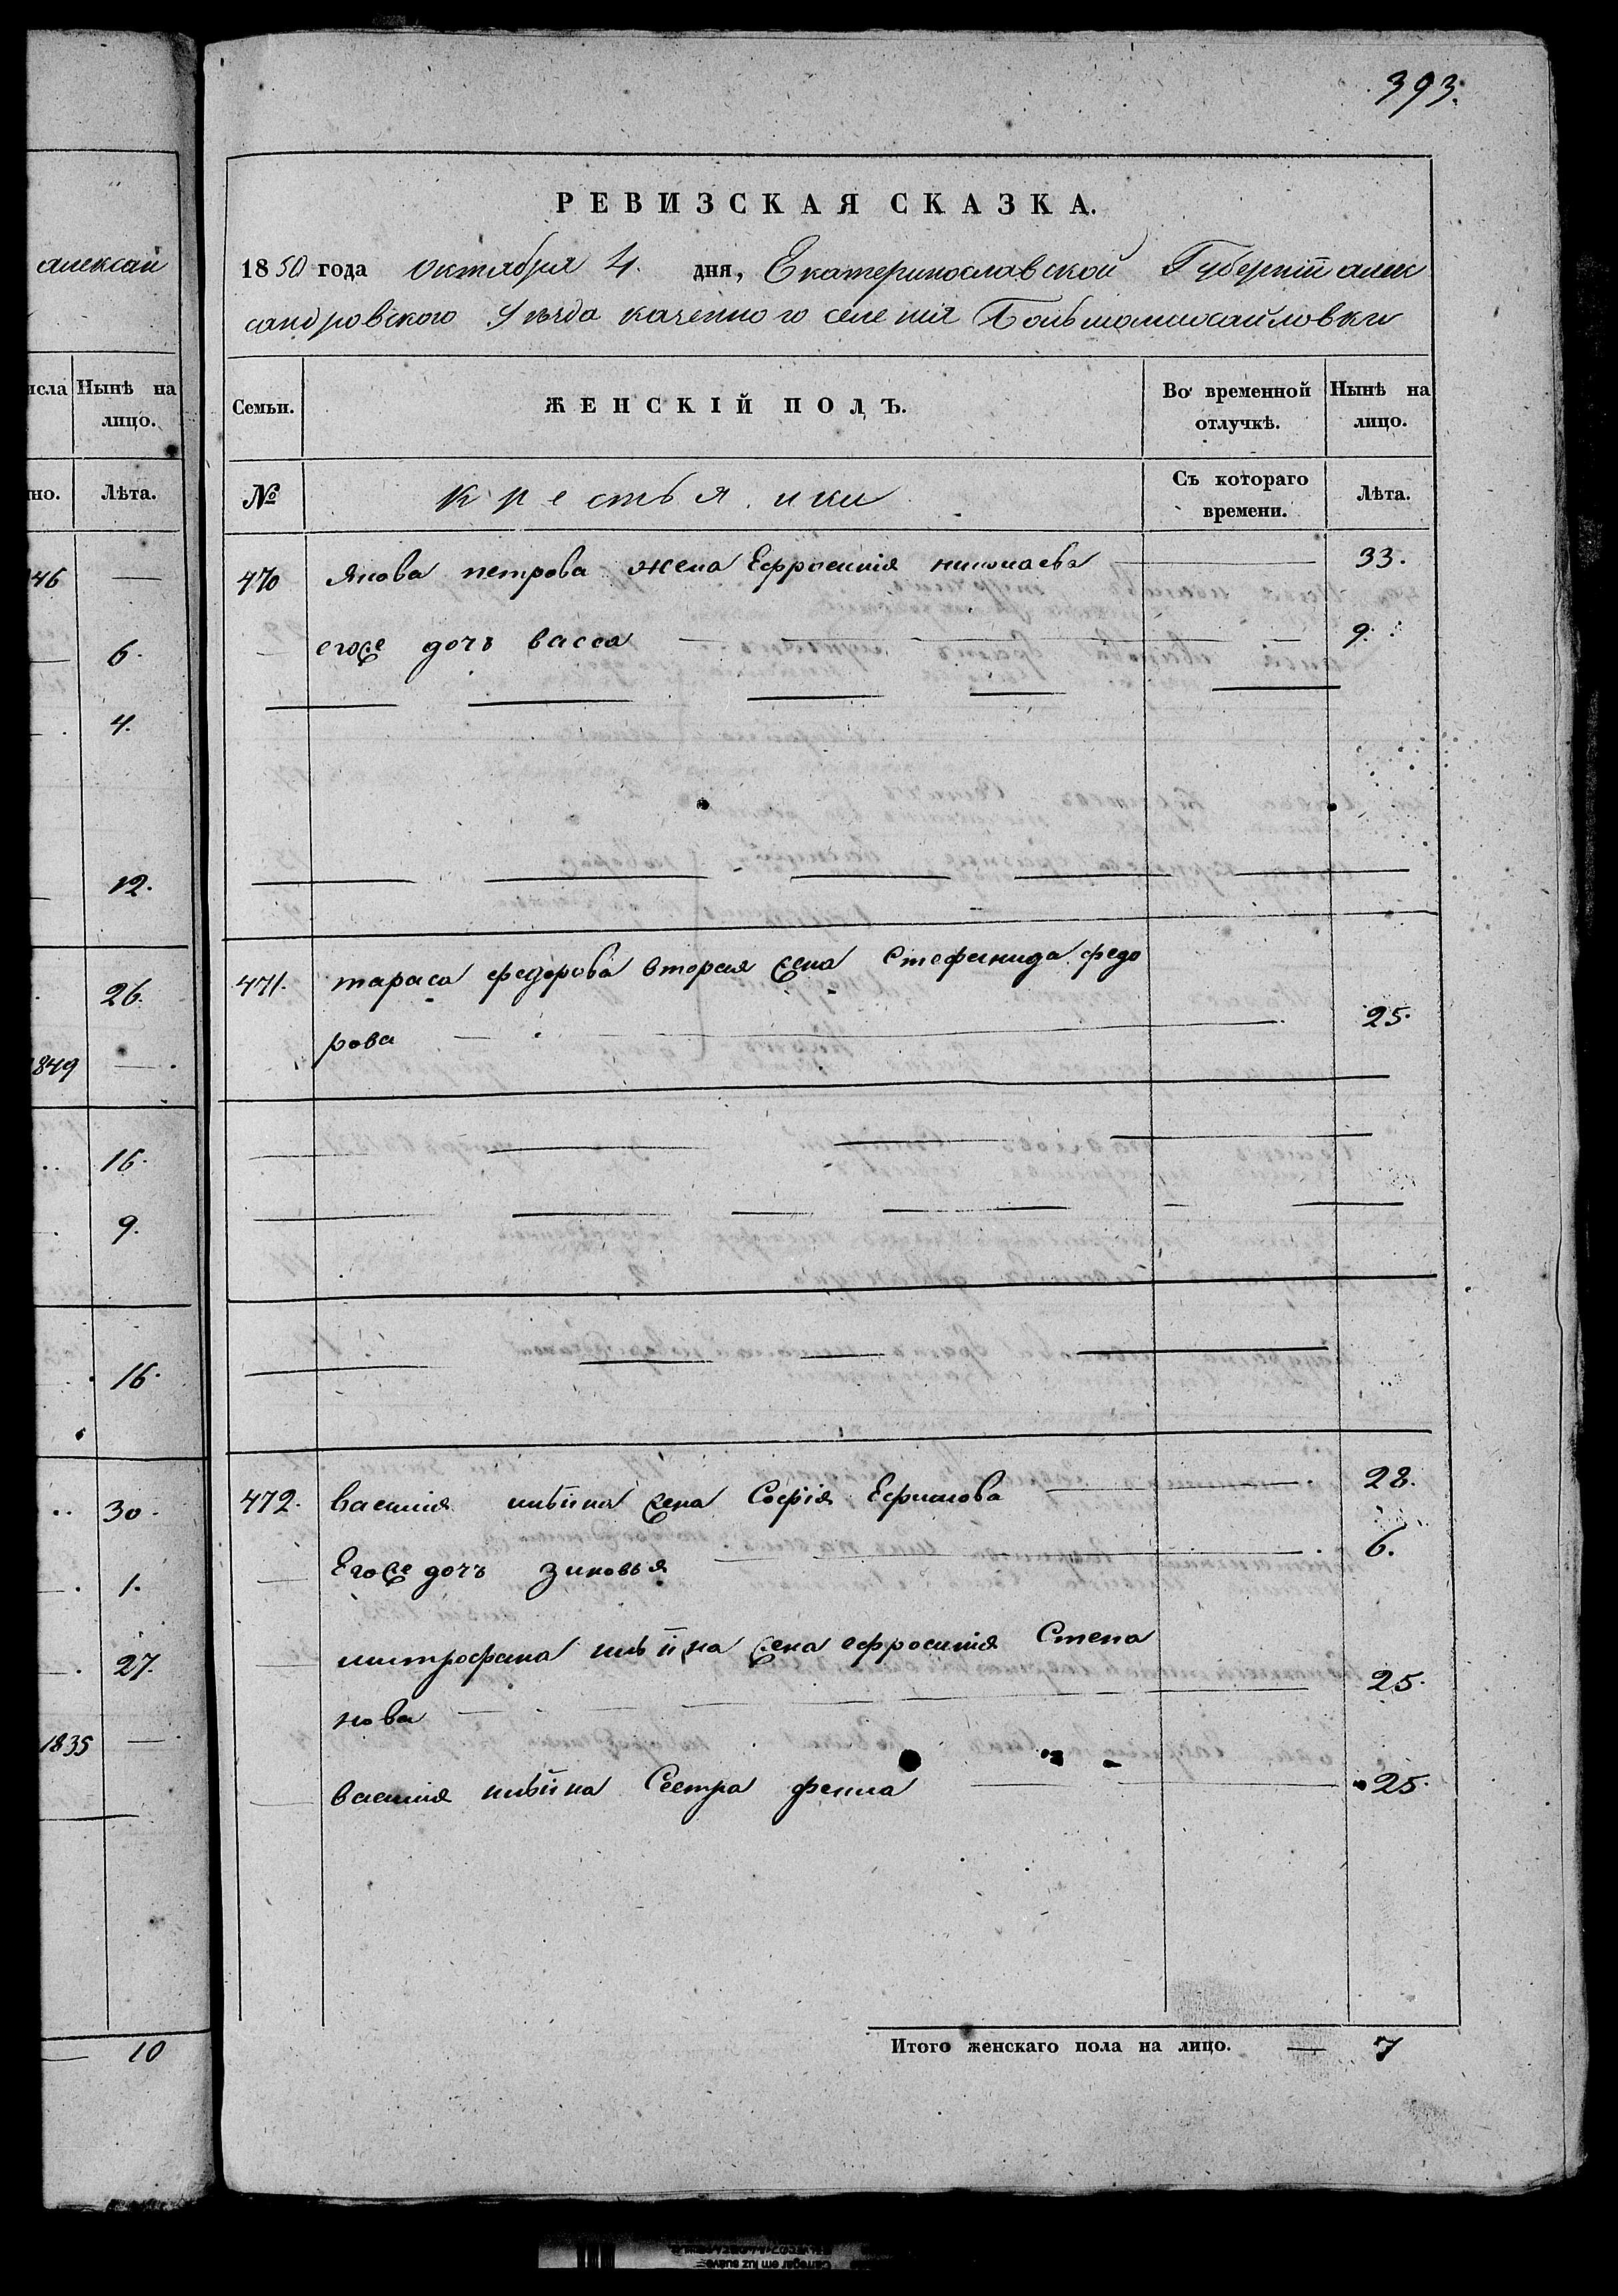 393.
алексан
исла
Нынѣ на
лицо.
но.
Лѣта.
46 —
6.
4.
12.
26.
1849 —
16.
9.
16.
30.
1.
27.
1835 —
10
РЕВИЗСКАЯ СКАЗКА.
1850 года Октября 4. дня, Екатеринославской Губерніи алек
сандровского Уѣзда казенного селенія Большомихайловки
Семьи.
ЖЕНСКІЙ ПОЛЪ.
Во временной
отлучкѣ.
Нынѣ на
лицо.
№
крестьянки
Съ котораго
времени.
Лѣта.
470 Якова петрова жена Ефросинія николаева — 33.
егоже дочь васса — 9.
471. тараса федорова вторая жена Стефанида федо
рова — 25.
472. василія жена Софія Ефимова — 28.
Егоже дочь зиновья — 6.
митрофана жена ефросинія Степа
нова — 25.
василія Сестра фекла — 25.
Итого женскаго пола на лицо. — 7